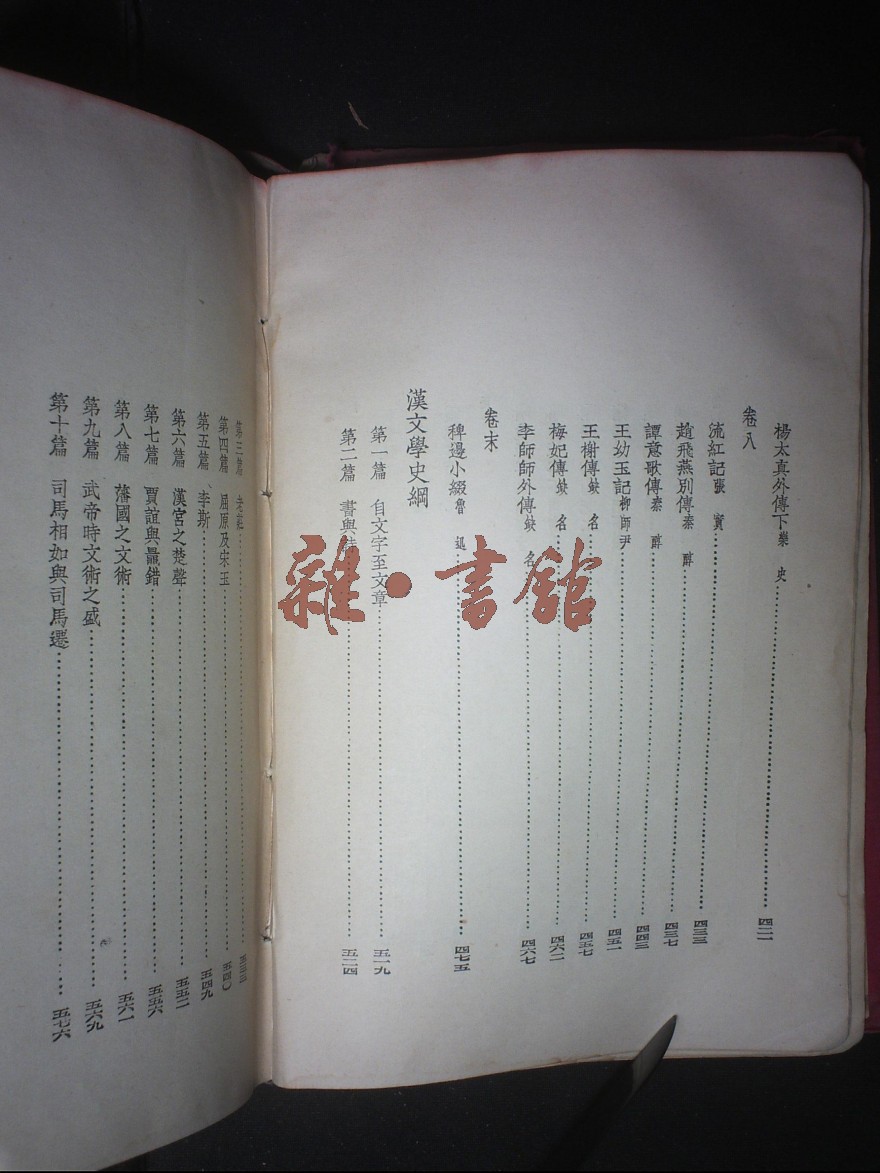 楊太真外傳下樂史……四二一
卷八
流紅記張實……四三三
趙飛燕別傳秦醇……四三七
譚意歌傳秦醇……四四三
王幼玉記柳師尹……四五一
王榭傳缺名……四五七
梅妃傳缺名……四六二
李師師外傳缺名……四六七
卷末
稗邊小綴魯迅……四七五
漢文學史綱
第一篇 自文字至文章……五一九
第二篇 書與詩……五二四
第三篇 老莊……五三三
第四篇 屈原及宋玉……五四〇
第五篇 李斯……五四九
第六篇 漢宮之楚聲……五五二
第七篇 賈誼與鼂錯……五五六
第八篇 藩國之文術……五六一
第九篇 武帝時文術之盛……五六九
第十篇 司馬相如與司馬遷……五七六
雜·書館